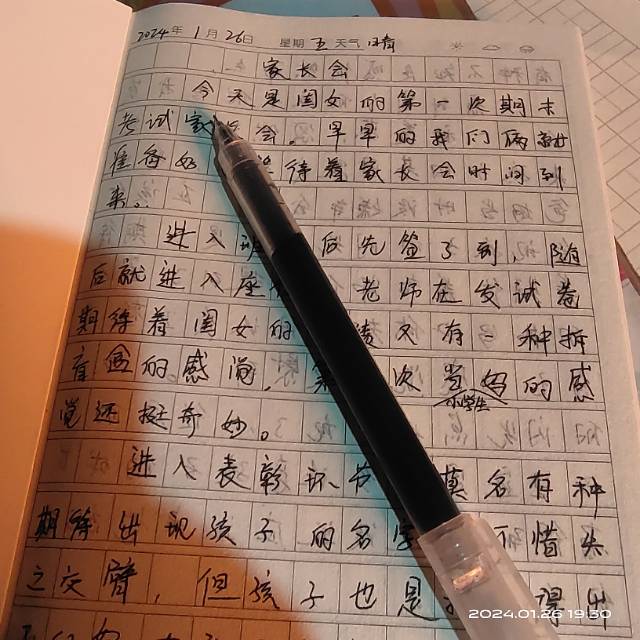 2024年 1月 26日 星期 五 天气 晴
家长会
今天是闺女的第一次期末
考试家 会。早早的我们俩就
准备好 等待着家长会时间到
来。
进入班 后先签了到,随
后就进入座 老师在发试卷
期待着闺女的 绩又有 种拆
盲盒的感觉,第 次当妈的感
小学生
觉还挺奇妙。
进入表彰环节 莫名有种
期待出现孩子的名字 惜失
之交臂,但孩子也是 得出
2024.01.26 19:30